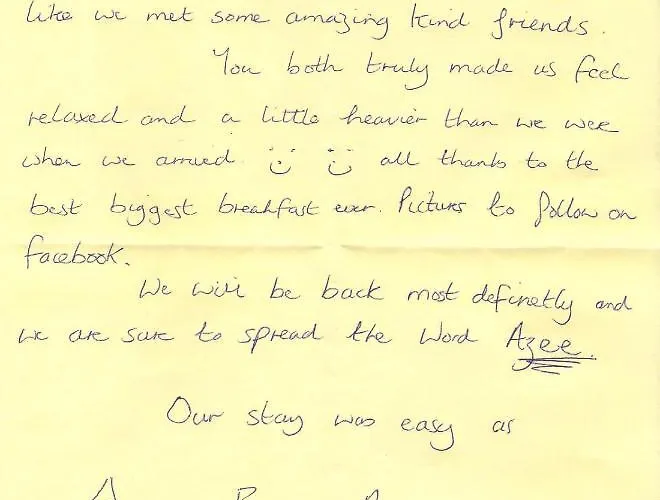 like we met some amazing kind friends.
You both truly made us feel
relaxed and a little heavier than we wee
when we arrived :) :) all thanks to the
best biggest breakfast ever. Pictures to follow on
facebook.
We will be back most definetly and
we are sure to spread the Word Azee.
Our stay was easy as